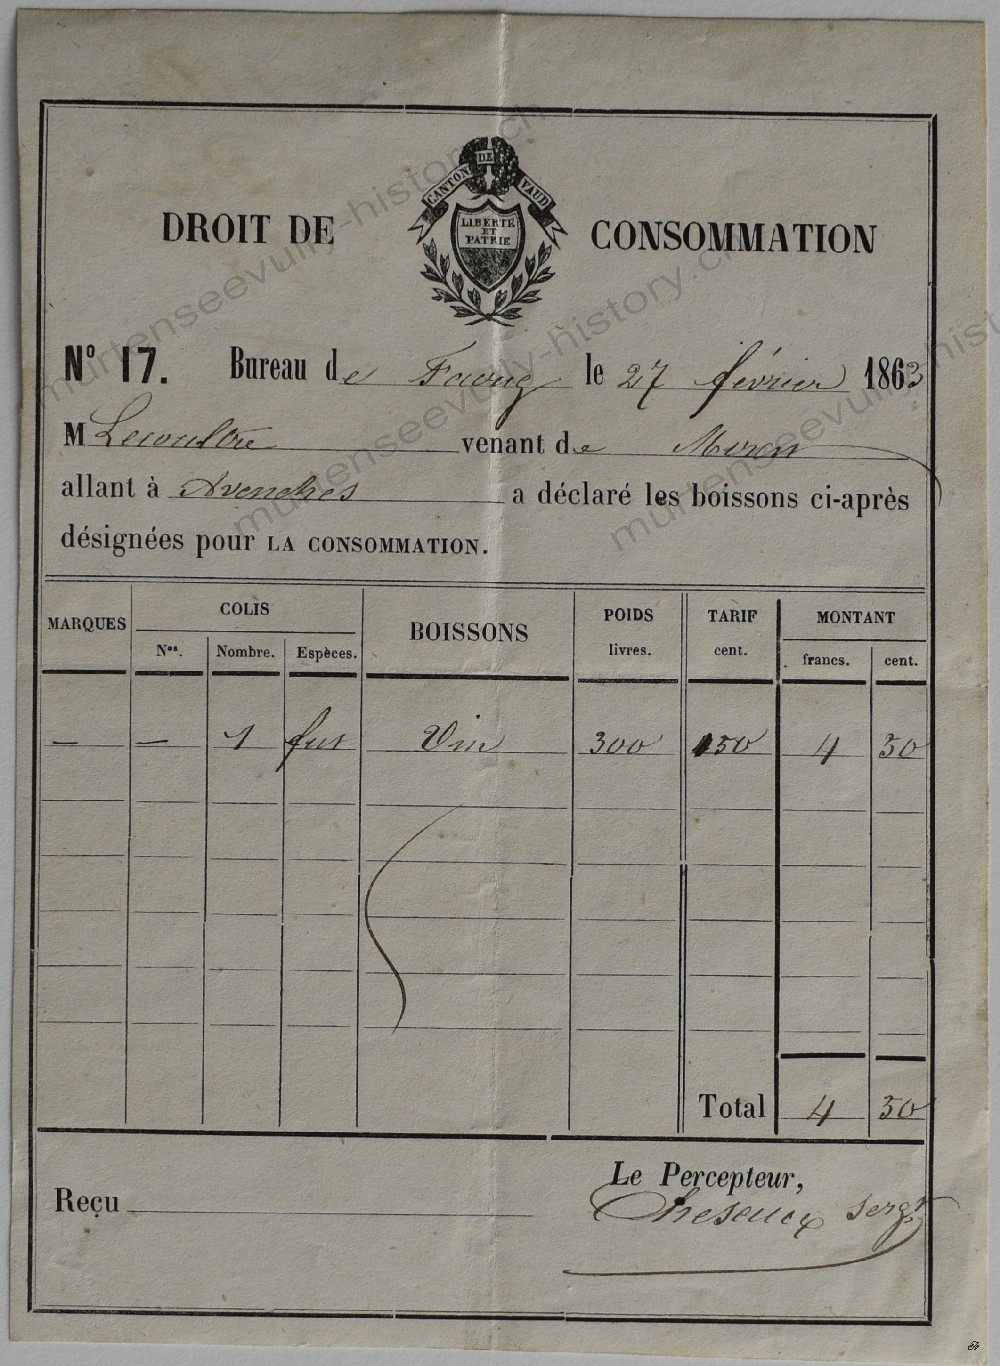 CANTON DE VAUD
LIBERTÉ
ET
PATRIE
DROIT DE CONSOMMATION
N° 17. Bureau de Faoug le 27 février 1863
M Lecoultre venant de Morat
allant à Avenches a déclaré les boissons ci-après
désignées pour LA CONSOMMATION.
MARQUES COLIS BOISSONS POIDS TARIF MONTANT
Nos. Nombre. Espèces. livres. cent. francs. cent.
— — 1 fut Vin 300 150 4 50
Total 4 50
Le Percepteur,
Reçu
sergt
murtenseevully-history.ch
murtenseevully-history.ch
murtenseevully-history.ch